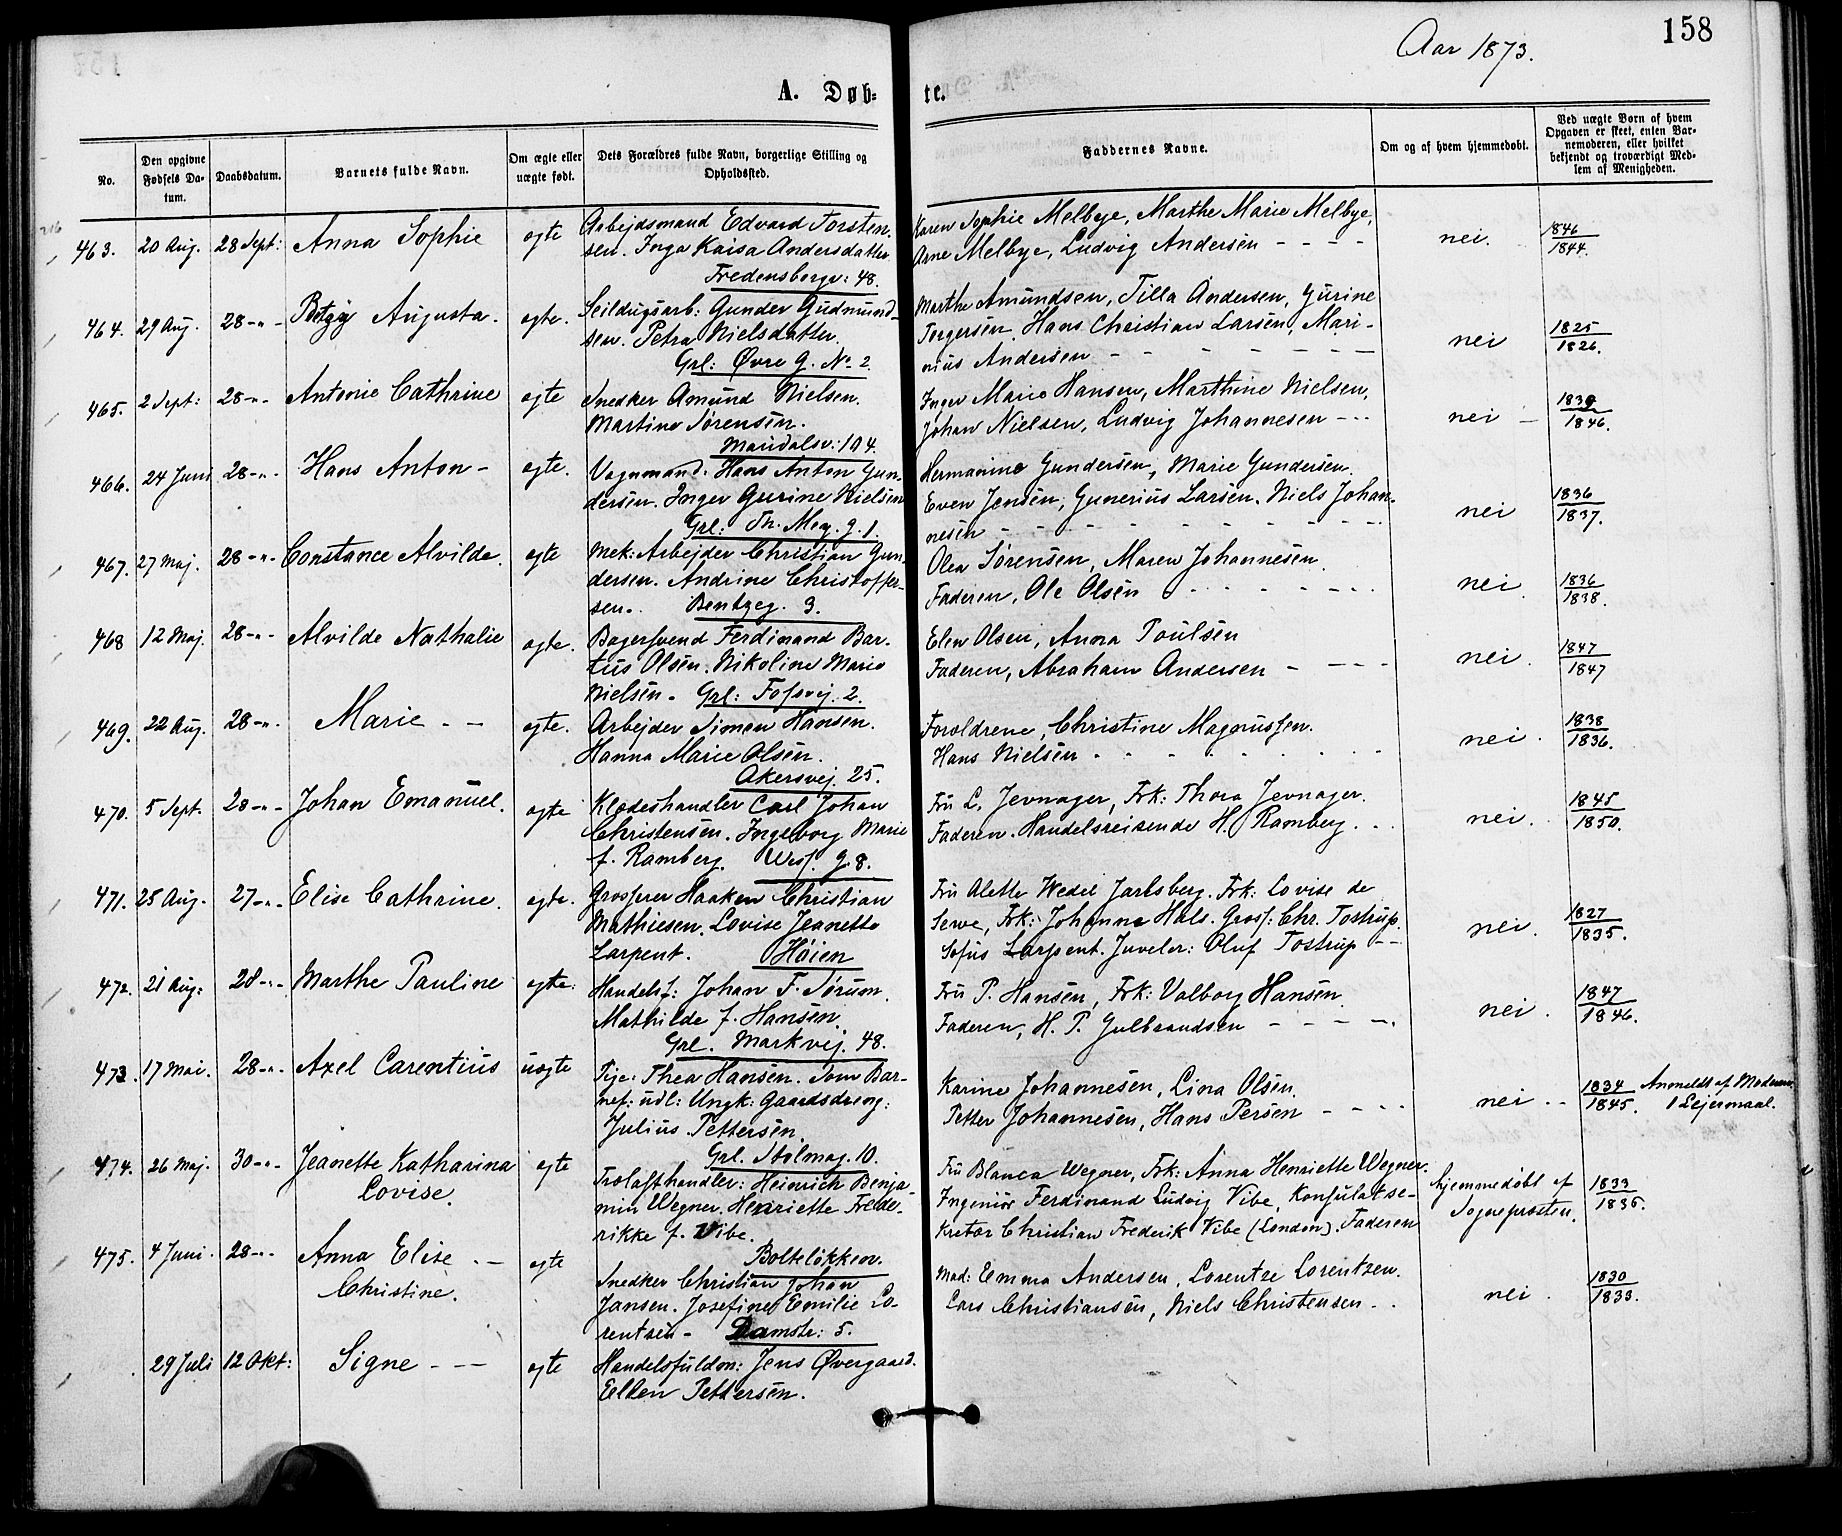 Aar 1873.
158
A. Døb-
te.
No.
Den opgivne Fødsels Da-
tum.
Daabsdatum.
Barnets fulde Navn.
Om ægte eller uægte født.
Dets Forældres fulde Navn, borgerlige Stilling og Opholdssted.
Faddernes Navne.
Om og af hvem hjemmedøbt.
Ved uægte Born af hvem Opgaven er skeet, enten Bar-
nemoderen, eller hvilket bekjendt og troværdigt Med-
lem af Menigheden.
463. 20 Aug. 28 Sept: Anna Sophie ægte
Arbejdsmand Edvard Torsten-
sen. Inga Kaisa Andersdatter
Fredensborgv: 48.
Karen Sophie Melbye, Marthe Marie Melbye,
Arne Melbye, Ludvig Andersen - - - -
nei. 1846
1844.
464. 29 Aug. 28-"- Augusta. ægte.
Seildugsarb: Gunder Gudmund-
sen. Petra Nielsdatter
Grl: Øvre G. No 2.
Marthe Amundsen, Tilla Andersen, Gurine
Torgersen, Hans Christian Larsen, Mari-
nius Andersen - - - - - - -
nei 1825
1826.
465. 2 Sept: 28-"- Antonie Cathrine ægte
Snedker Amund Nielsen.
Martine Sørensen.
Maridalsv: 104.
Inger Marie Hansen, Marthine Nielsen,
Johan Nielsen, Ludvig Johannesen - - -
nei - 1839
1846.
466. 24 Juni 28-"- Hans Anton - ægte.
Vognmand. Hans Anton Gun-
dersen. Inger Gurine Nielsen
Grl: Th. Mey. g. 1.
Hermanine Gundersen, Marie Gundersen.
Even Jensen, Gunerius Larsen. Niels Johan-
nesen - - - - - - - -
nei 1836
1837.
467. 27 Maj. 28-"- Constance Alvilde. ægte
Mek: Arbejder Christian Gun-
dersen. Andrine Christoffer-
sen. Bentzeg. 3.
Olea Sørensen, Maren Johannesen.
Faderen, Ole Olsen - - - - - -
nei. 1836
1838.
468 12 Maj. 28-"- Alvilde Nathalie ægte.
Bagersvend Ferdinand Bar-
tus Olsen. Nikoline Marie
Nielsen. Grl: Fossvej. 2.
Elen Olsen, Anna Poulsen
Faderen, Abraham Andersen - - - -
nei. 1847
1847
469. 22 Aug. 28-"- Marie - - ægte.
Arbejder Simen Hansen.
Hanna Marie Olsen.
Akersvej. 25.
Foreldrene, Christine Magnussen.
Hans Nielsen - - - - - - -
nei. 1838
1836.
470. 5 Sept. 28-"- Johan Emanuel. ægte
Klædeshandler Carl Johan
Christensen. Ingeborg Marie
f. Ramberg. g. 8.
Fru L. Jevnager, Frk: Thora Jevnager.
Faderen. Handelsreisende H. Ramberg. . .
nei. 1845
1850.
471. 25 Aug. 27-"- Elise Cathrine. ægte.
Grosserer Haaken Christian
Mathiesen. Lovise Jeanette
Larpent. Høien
Fru Alette Wedel Jarlsberg. Frk: Lovise de
Seve, Frk: Johanne Hals. Gross: Chr. Tostrup.
Sofus Larpent. Juveler: Oluf Tostrup - -
nei. 1827
1835.
472. 21 Aug: 28-"- Marthe Pauline ægte:
Handelsf: Johan F. Sørum.
Mathilde f. Hansen.
Grl. Markvej. 48.
Fru P. Hansen, Frk: Valborg Hansen.
Faderen, H. P. Gulbrandsen - - - -.
nei. 1847
1846.
473. 17 Mai. 28-"- Axel Carentius uægte
Pige: Thea Hansen. Som Bar-
nef: udl: Ungk: Gaardsdreng:
Julius Pettersen.
Grl. Stolmag. 10.
Karine Johannesen, Lina Olsen.
Petter Johannesen, Hans Persen - - - -
nei - - 1834
1845. Anmeldt af Moderen
1 Lejermaal.
474. 26 Maj. 30-"- Jeanette Katharina
Lovise. ægte
Trælasthandler: Heinrich Benja-
min Wegner. Henriette Frede-
rikke f. Vibe.
Bolteløkken.
Fru Blanca Wegner, Frk: Anna Henriette Wegner.
Ingeniør Ferdinand Ludvig Vibe, Konsulatse-
kretær Christian Frederik Vibe (London). Faderen
hjemmedøbt af
Sogneprosten. 1833
1835.
475. 4 Juni. 28-"- Anna Elise - -
Christine. ægte
Snedker Christian Johan
Jansen. Josefine Emilie Lo-
rentzen - Damstr: 5.
Mad: Emma Andersen, Lorentze Lorentzen.
Lars Christiansen, Niels Christensen - .
nei. 1830
1833.
29 Juli 12 Okt: Signe - - - ægte
Handelsfuldm: Jens Øvergaard.
Ellen Pettersen.